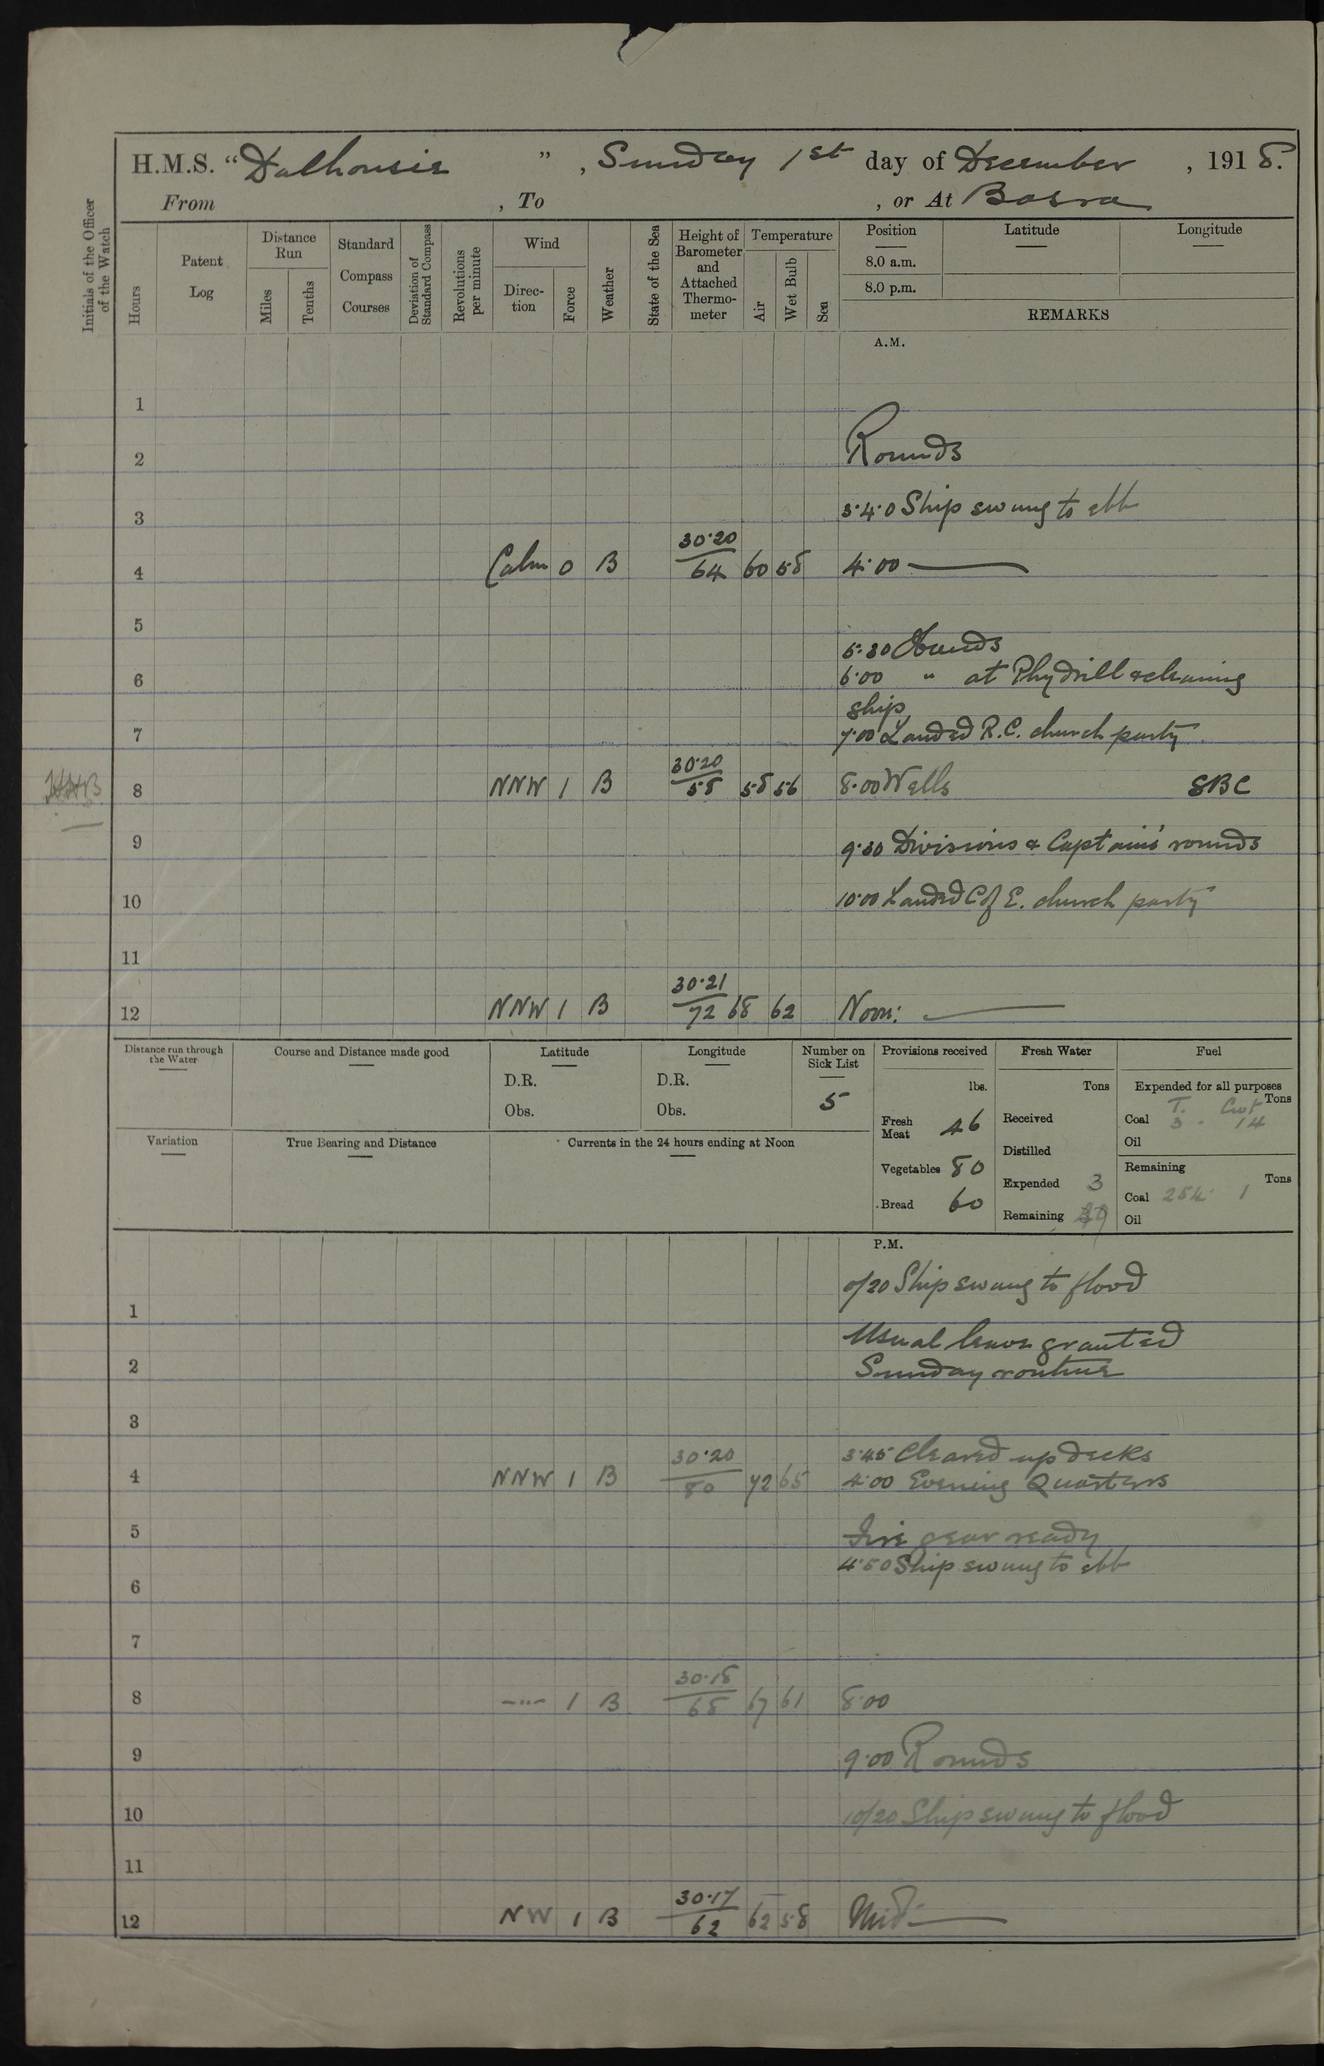 H.M.S. "Dalhousie", Sunday 1st day of December, 1918.
From , To , or At Basra
Initials of the Officer of the Watch
Hours
Patent Log
Distance Run
Miles
Tenths
Standard Compass Courses
Deviation of Standard Compass
Revolutions per minute
Wind
Direction
Force
Weather
State of the Sea
Height of Barometer and Attached Thermometer
Temperature
Air
Wet Bulb
Sea
Position
8.0 a.m.
8.0 p.m.
Latitude
Longitude
REMARKS
A.M.
1
2 Rounds
3 3.40 Ship swung to ebb
4 Calm 0 B 30.20/64 60 58 4.00
5
5.30 Hands
6 6.00 " at Phy drill & cleaning
ship
7 7.00 Landed R.C. church party
8 NNW 1 B 30.20/58 58 56 8.00 Wells SBC
9 9.30 Divisions & Captain's rounds
10 10.00 Landed C of E. church party
11
12 NNW 1 B 30.21/72 68 62 Noon:
Distance run through the Water
Course and Distance made good
Latitude
D.R.
Obs.
Longitude
D.R.
Obs.
Number on Sick List
5
Provisions received
lbs.
Fresh Meat 46
Vegetables 80
Bread 60
Fresh Water
Tons
Received
Distilled
Expended 3
Remaining
Fuel
Expended for all purposes
Tons
T. Cwt
Coal 3 . 14
Oil
Remaining
Tons
Coal 254 . 1
Oil
Variation
True Bearing and Distance
Currents in the 24 hours ending at Noon
P.M.
0/20 Ship swung to flood
1
Usual leave granted
2 Sunday routine
3
3.45 Cleared up decks
4 NNW 1 B 30.20/80 72 65 4.00 Evening Quarters
5 Fire gear ready
4.50 Ship swung to ebb
6
7
8 —"— 1 B 30.18/68 67 61 8.00
9 9.00 Rounds
10 10/20 Ship swung to flood
11
12 NW 1 B 30.17/62 62 58 Mid